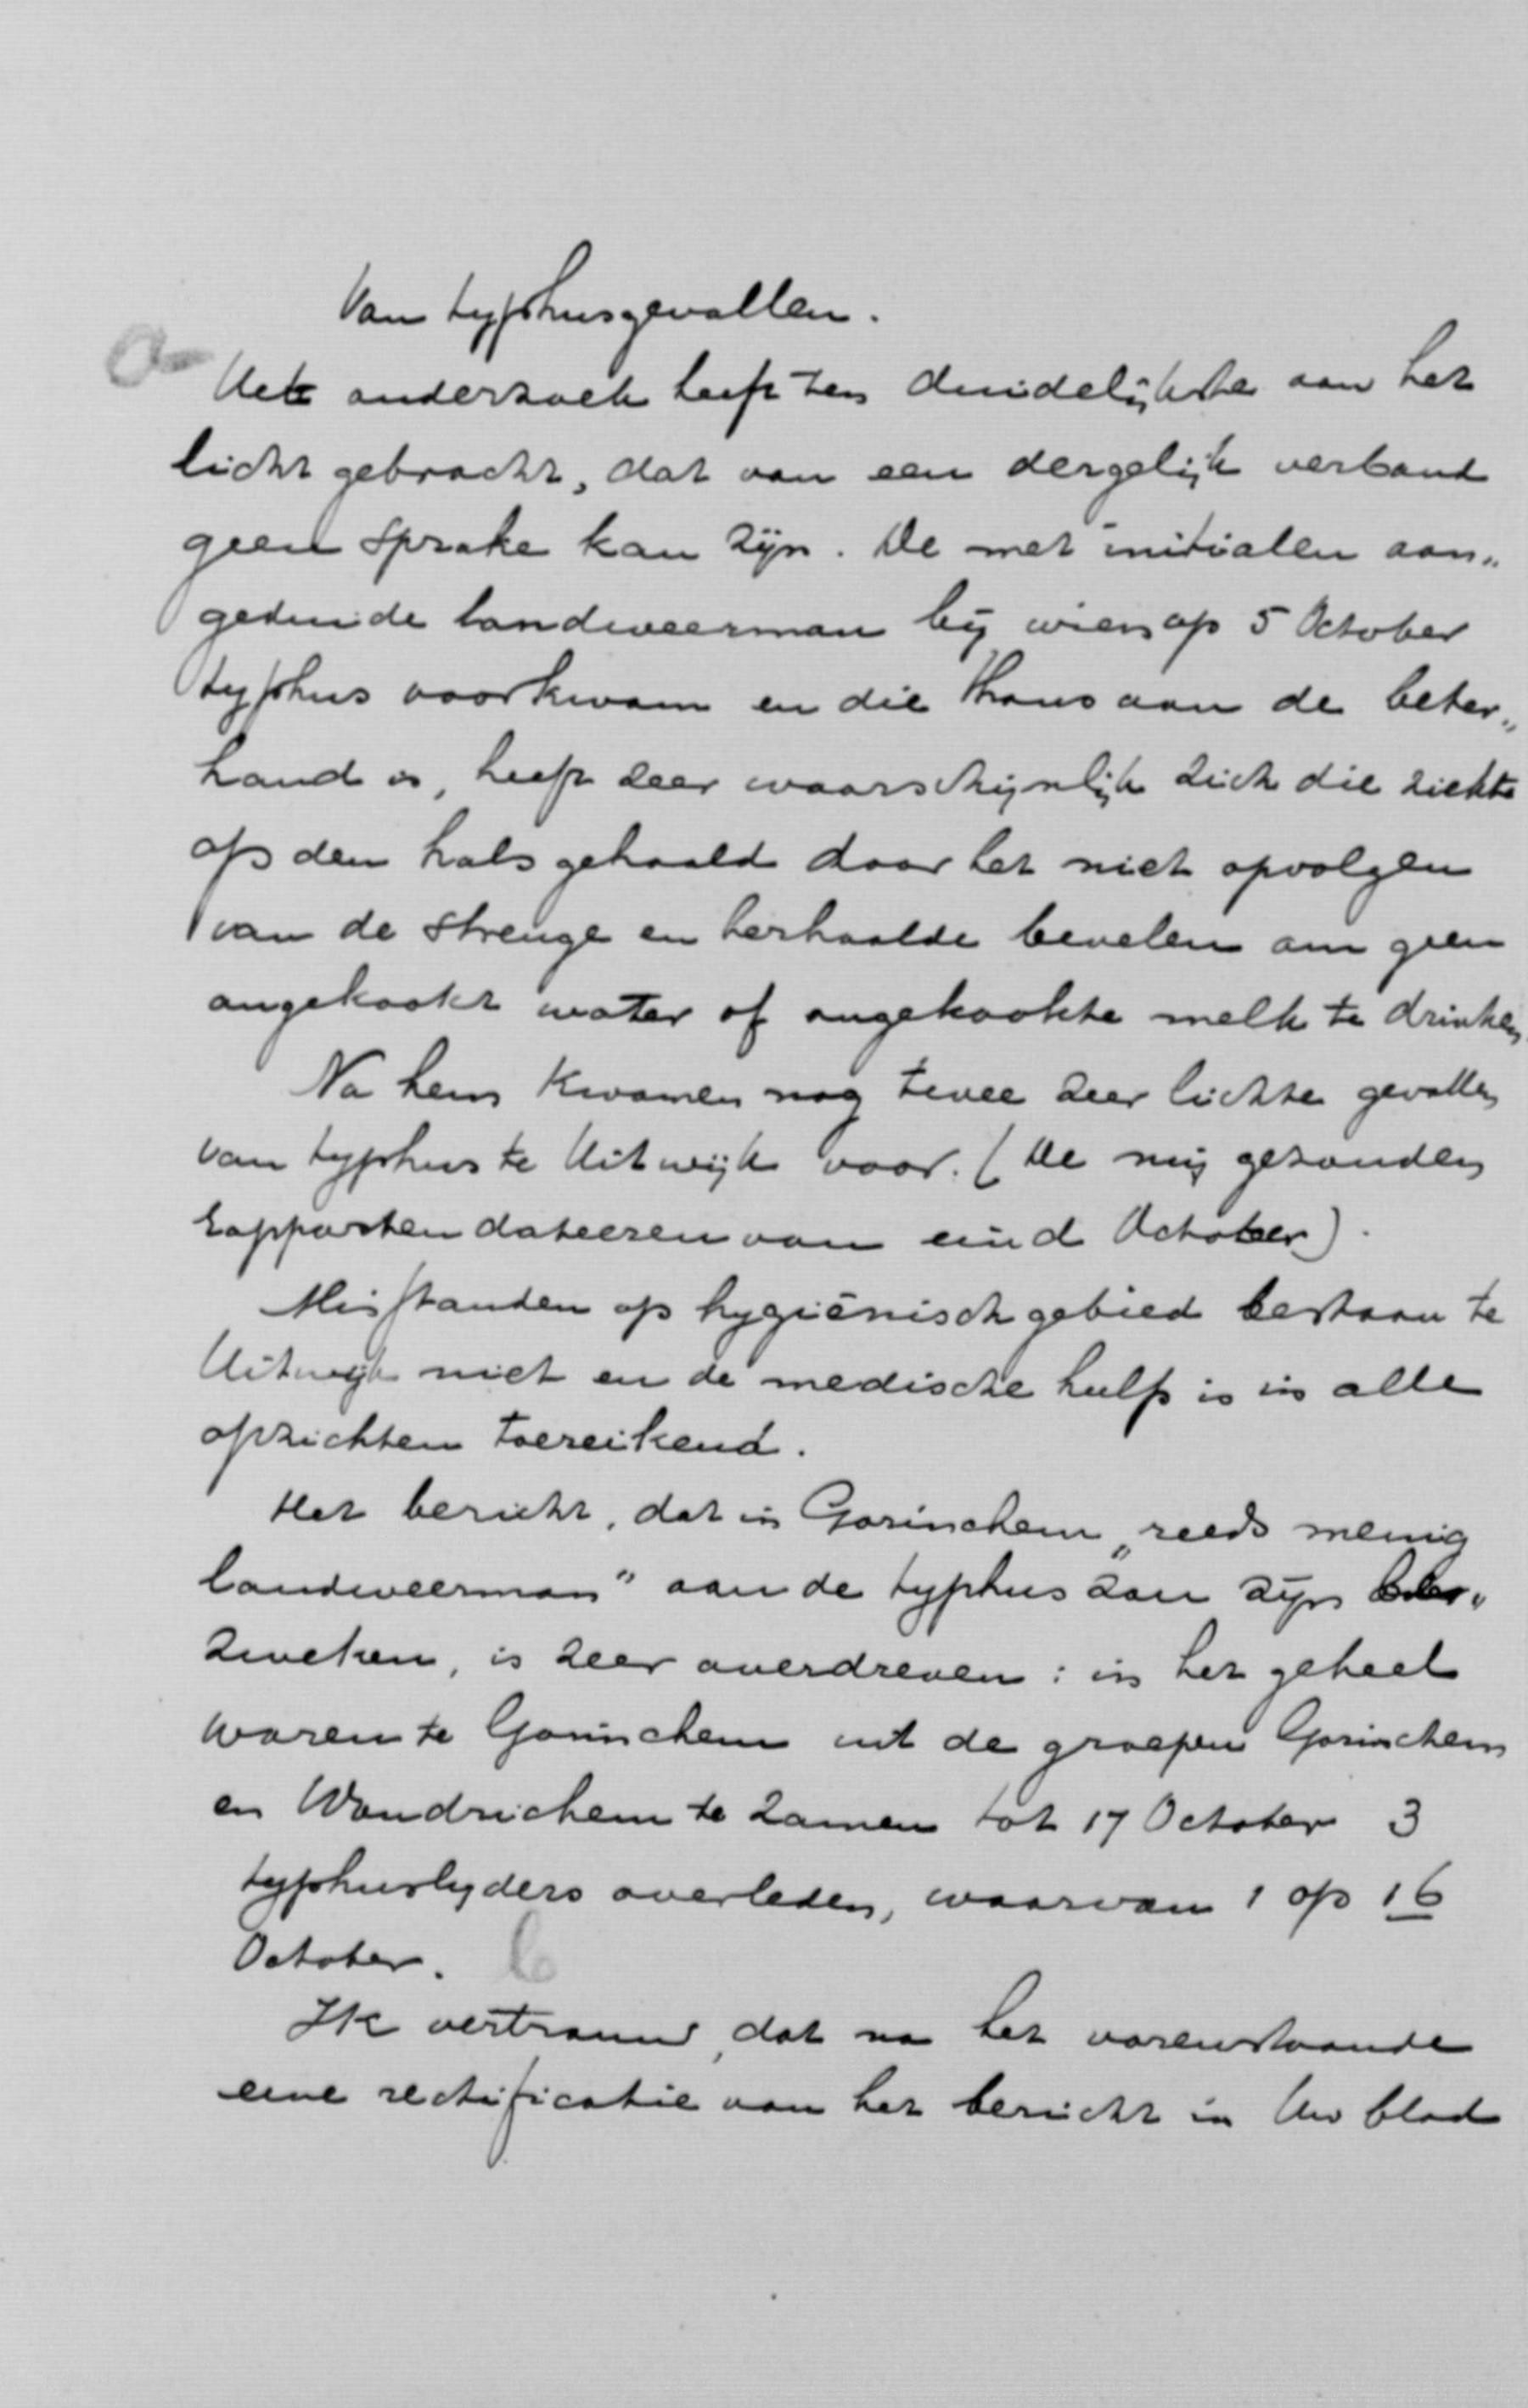 van typhusgevallen.
a
Het onderzoek heeft ten duidelijkste aan het
licht gebracht, dat van een dergelijk verband
geen sprake kan zijn. De met initialen aan„
geduide landweerman bij wien op 5 October
typhus voorkwam en die thans aan de beter„
hand is, heeft zeer waarschijnlijk zich die ziekte
op den hals gehaald door het niet opvolgen
van de strenge en herhaalde bevelen om geen
ongekookt water of ongekookte melk te drinken.
Na hem kwamen nog twee zeer lichte gevallen
van typhus te Uitwijk voor. (De mij gezonden
rapporten dateeren van eind October).
Misstanden op hygiënisch gebied bestaan te
Uitwijk niet en de medische hulp is in alle
opzichten toereikend.
Het bericht, dat in Gorinchem „reeds menig
landweerman" aan de typhus zou zijn be„
zweken, is zeer overdreven: in het geheel
waren te Gorinchem uit de groepen Gorinchem
en Woudrichem te zamen tot 17 October 3
typhuslijders overleden, waarvan 1 op 16
October. b
Ik vertrouw, dat na het vorenstaande
eene rectificatie van het bericht in Uw blad